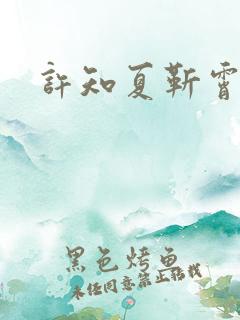 許知夏靳霄
黑色烤魚
未经同意禁止转載